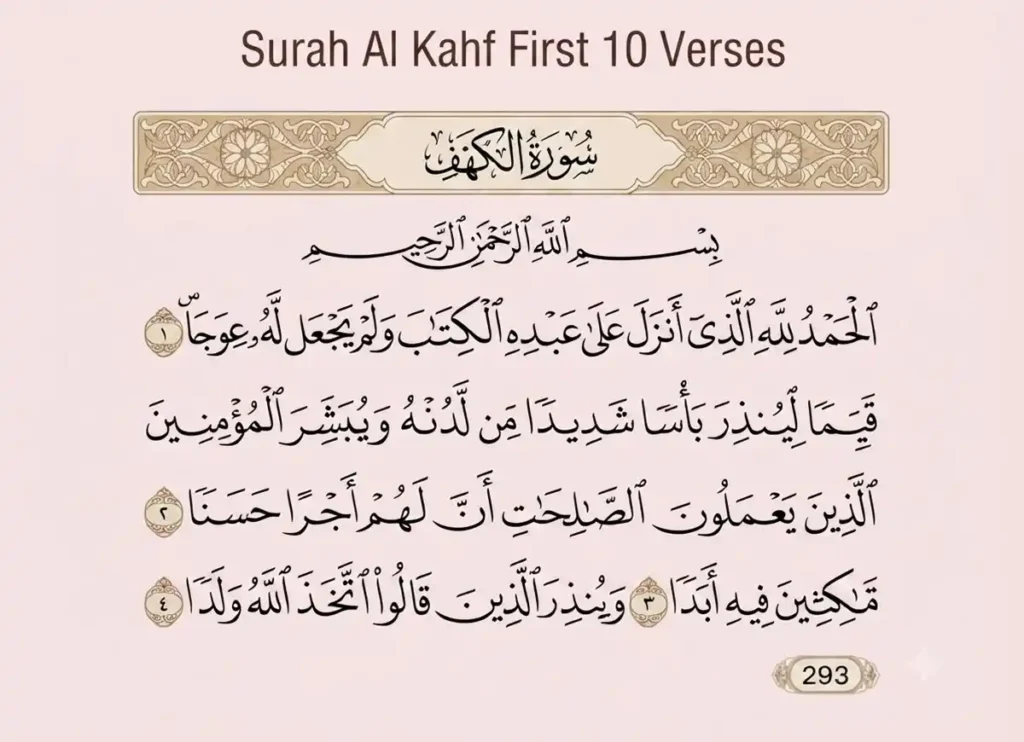 Surah Al Kahf First 10 Verses
سُورَةُ الكَهۡفِ
بِسۡمِ ٱللَّهِ ٱلرَّحۡمَٰنِ ٱلرَّحِيمِ
ٱلۡحَمۡدُ لِلَّهِ ٱلَّذِيٓ أَنزَلَ عَلَىٰ عَبۡدِهِ ٱلۡكِتَٰبَ وَلَمۡ يَجۡعَل لَّهُۥ عِوَجَاۜ ١
قَيِّمٗا لِّيُنذِرَ بَأۡسٗا شَدِيدٗا مِّن لَّدُنۡهُ وَيُبَشِّرَ ٱلۡمُؤۡمِنِينَ
ٱلَّذِينَ يَعۡمَلُونَ ٱلصَّٰلِحَٰتِ أَنَّ لَهُمۡ أَجۡرًا حَسَنٗا ٢
مَّٰكِثِينَ فِيهِ أَبَدٗا ٣ وَيُنذِرَ ٱلَّذِينَ قَالُواْ ٱتَّخَذَ ٱللَّهُ وَلَدٗا ٤
293